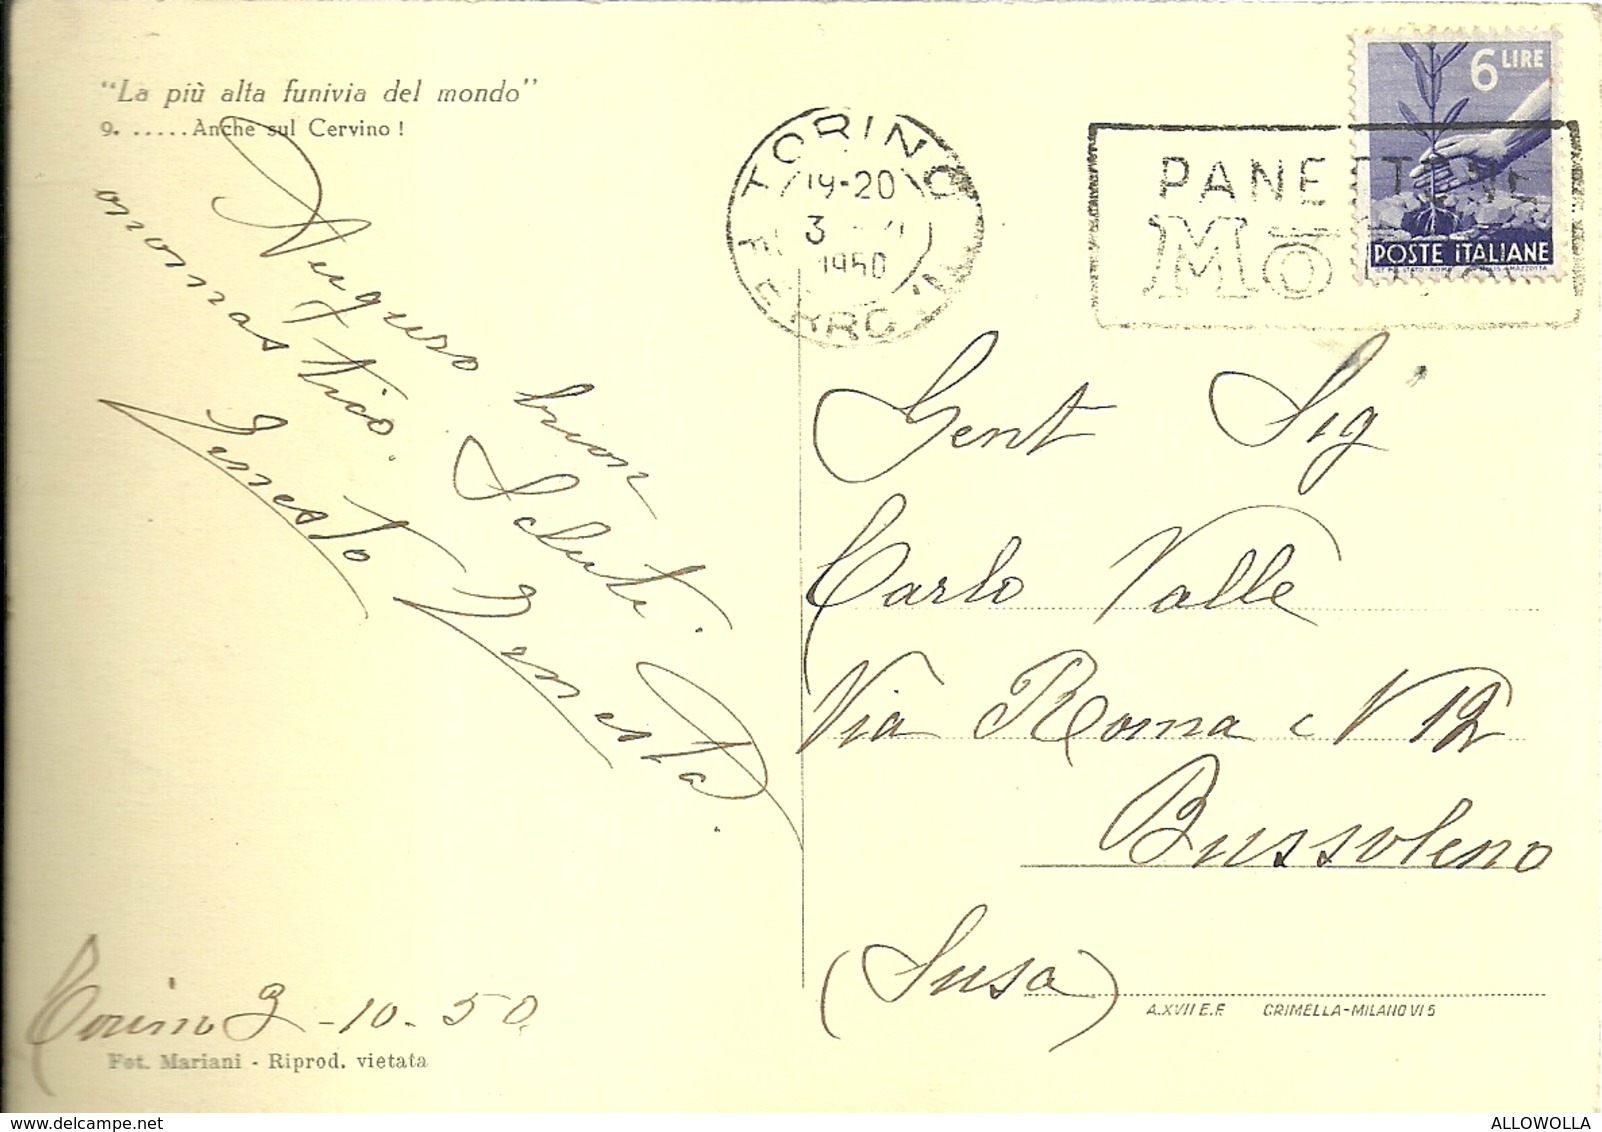 "La più alta funivia del mondo"
9. .....Anche sul Cervino !
Auguro buon
onomastico. Saluti.
Ernesto Ernesta.
Torino 3-10-50.
Fot. Mariani - Riprod. vietata
TORINO
19-20
3
1950
FERROV.
PANETTONE
6 LIRE
POSTE ITALIANE
Gent Sig
Carlo Valle
Via Roma N 12
Bussoleno
(Susa)
A.XVII E.F. GRIMELLA-MILANO VI 5
ALLOWOLLA